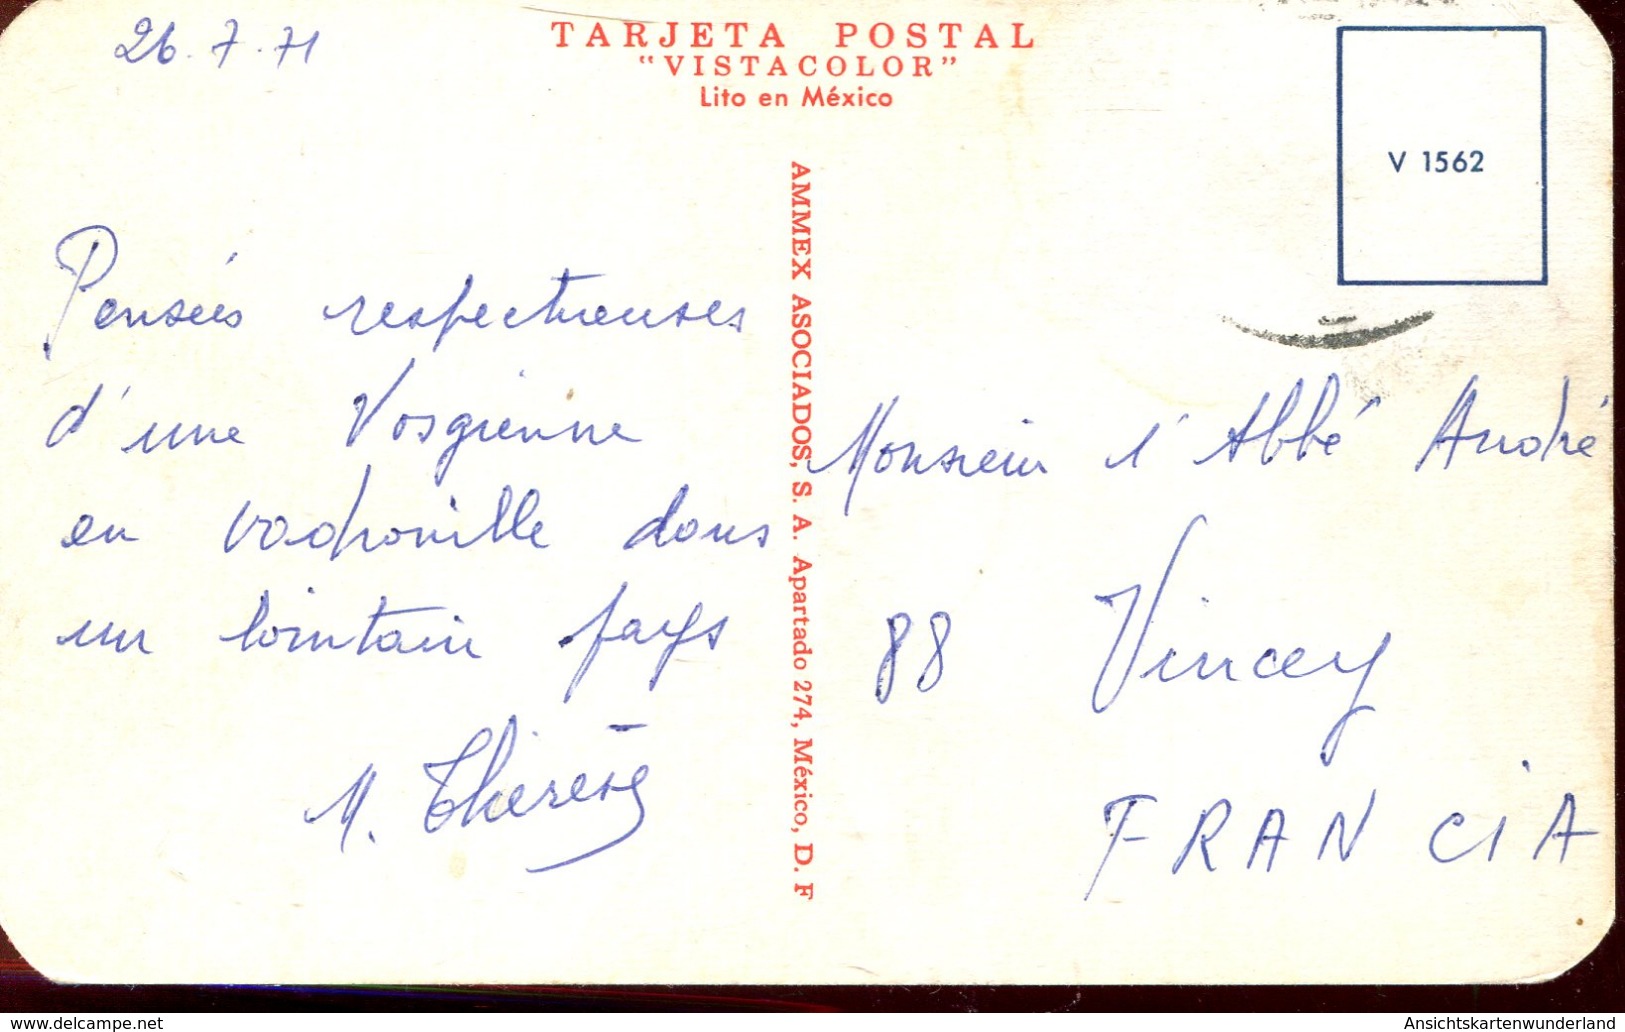 26.7.71
TARJETA POSTAL
"VISTACOLOR"
Lito en México
V 1562
AMMEX ASOCIADOS, S. A. Apartado 274, México, D. F
Pensées respectueuses
d'une Vosgienne
en vadrouille dans
un lointain pays
M. Thérèse
Monsieur l'Abbé André
88 Vincey
FRANCIA
www.delcampe.net
Ansichtskartenwunderland